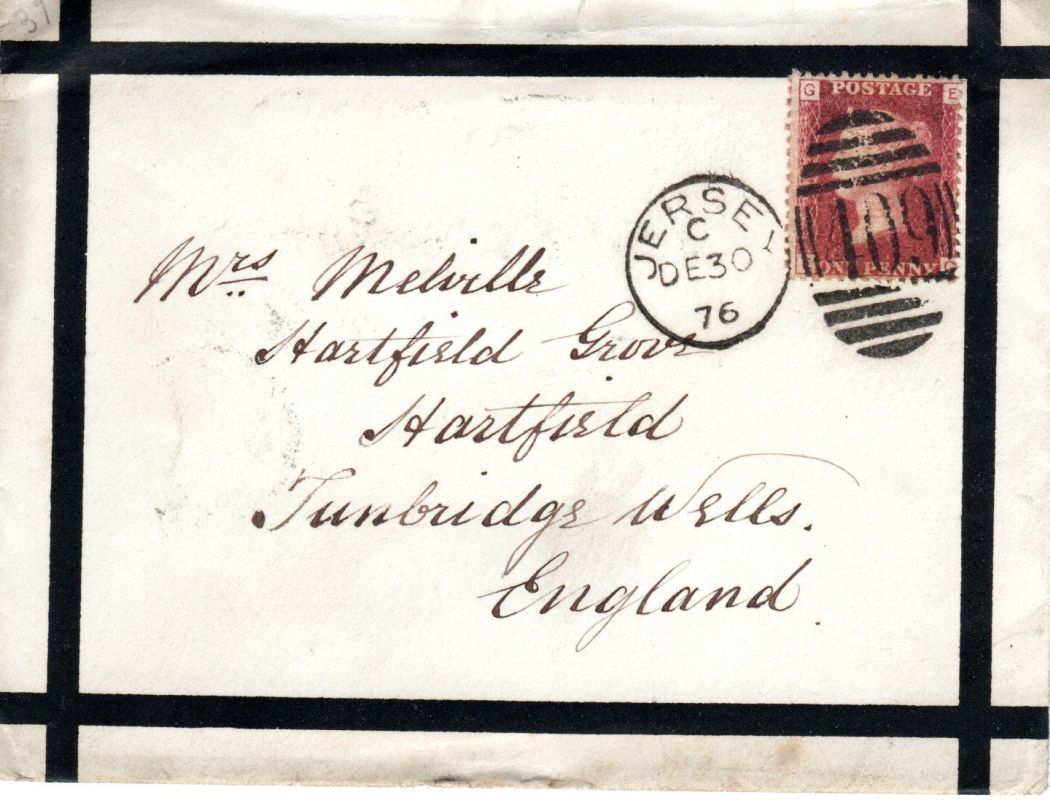 37
G POSTAGE E
JERSEY
C
DE30
76
409
ONE PENNY
Mrs Melville
Hartfield Grove
Hartfield
Tunbridge Wells.
England.